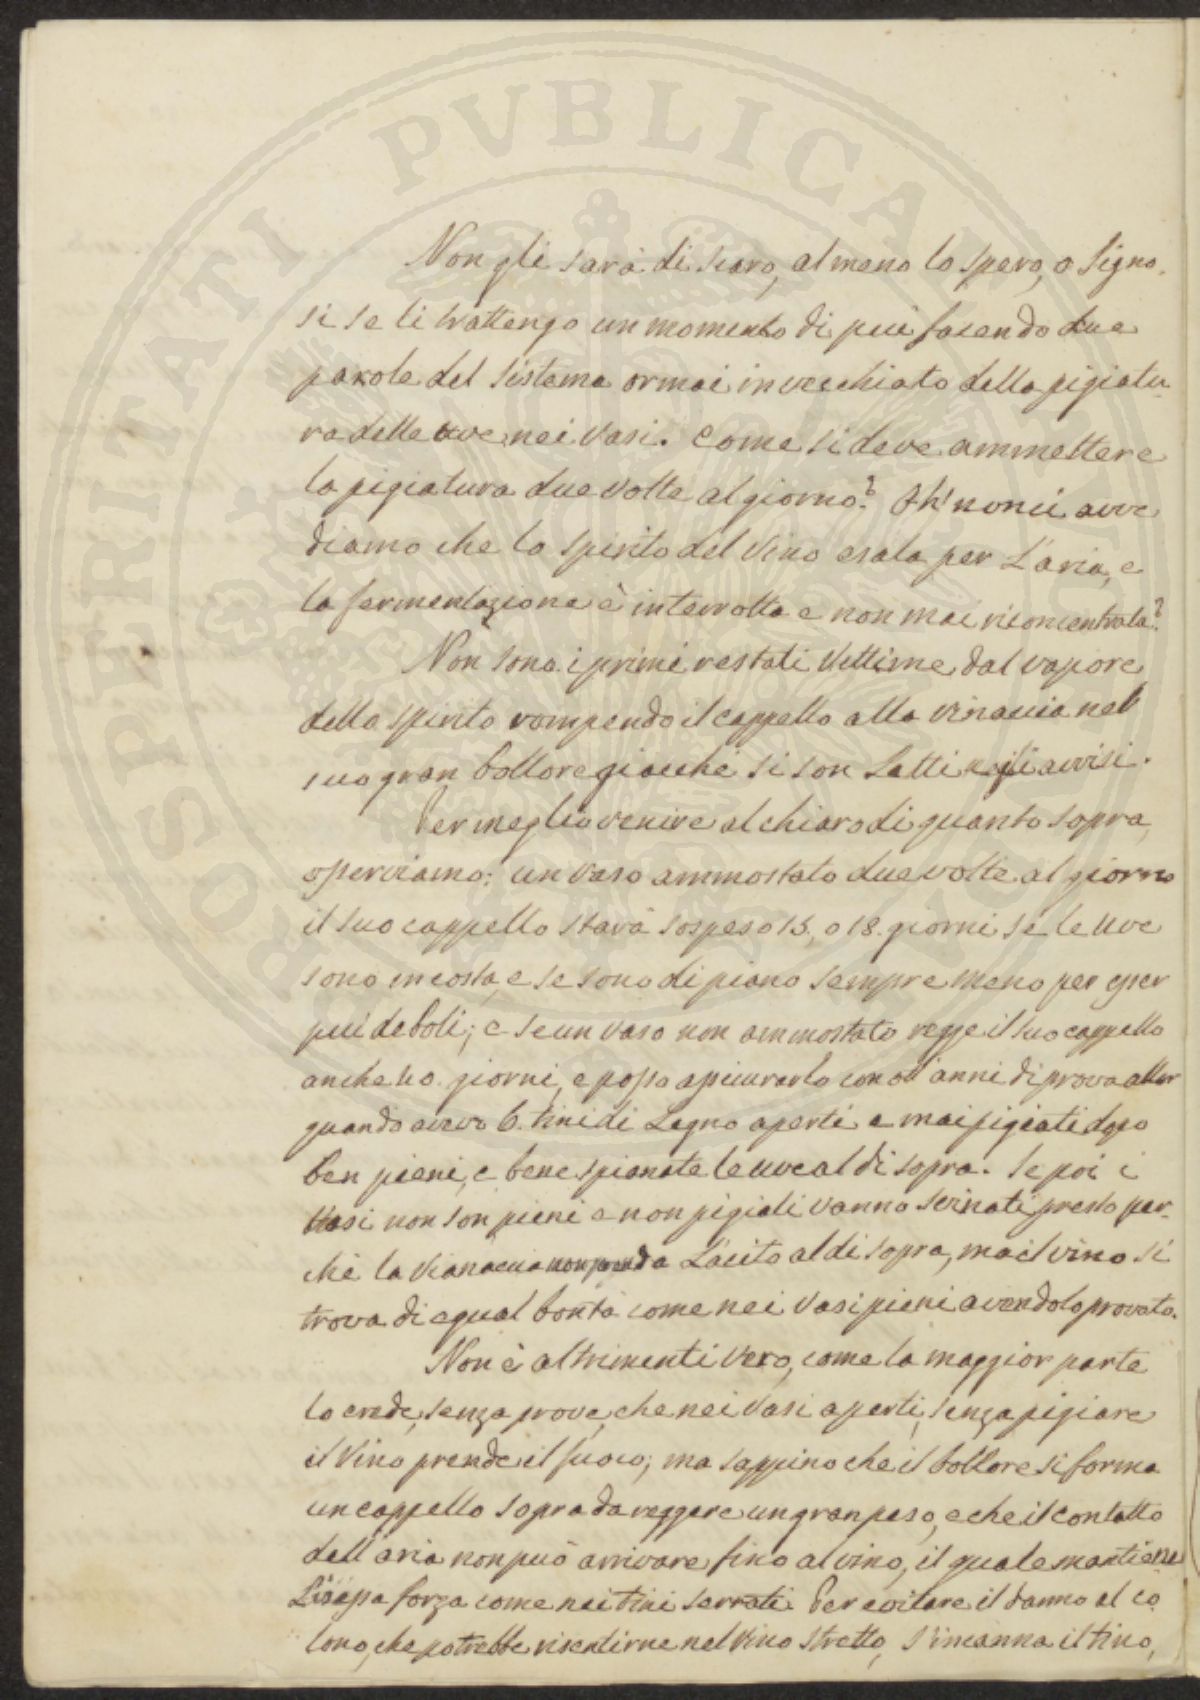 Non gli sarà di scaro, al meno lo spero, o Signo-
ri se li trattengo un momento di più facendo due
parole del Sistema ormai invecchiato della pigiatu-
ra delle uve nei Vasi. Come si deve ammettere
la pigiatura due volte al giorno? Oh! non ci avve
diamo che lo spirito del Vino esala per L'aria, e
la fermentazione è interrotta e non mai riconcentrata?
Non sono i primi restati Vittime dal vapore
dello spirito rompendo il cappello alla vinaccia nel
suo gran bollore giacchè si son Letti negli avvisi.
Per meglio venire al chiaro di quanto sopra,
osserviamo: un vaso ammostato due volte al giorno
il suo cappello starà sospeso 15, o 18. giorni se le uve
sono in costa, e se sono di piano sempre meno per esser
più deboli; e se un vaso non ammostato regge il suo cappello
anche 40. giorni, e posso assicurarlo con ott'anni di prova allor
quando avevo 6. tini di Legno aperti e mai pigiati dopo
ben pieni, e bene spianate le uve al di sopra. Se poi i
Vasi non son pieni e non pigiati vanno svinati presto per-
chè la Vianaccia non prenda L'acito al di sopra, ma il vino si
trova di egual bontà come nei Vasi pieni avendolo provato.
Non è altrimenti vero, come la maggior parte
lo crede, senza prove, che nei Vasi aperti, senza pigiare
il Vino prende il fuoco; ma sappino che il bollore si forma
un cappello sopra da reggere un gran peso, e che il contatto
dell'aria non può arrivare fino al vino, il quale mantiene
L'istessa forza come nei tini serrati. Per evitare il danno al co
lono, che potrebbe risentirne nel Vino stretto, s'incanna il tino,
PROSPERITATI PVBLICAE